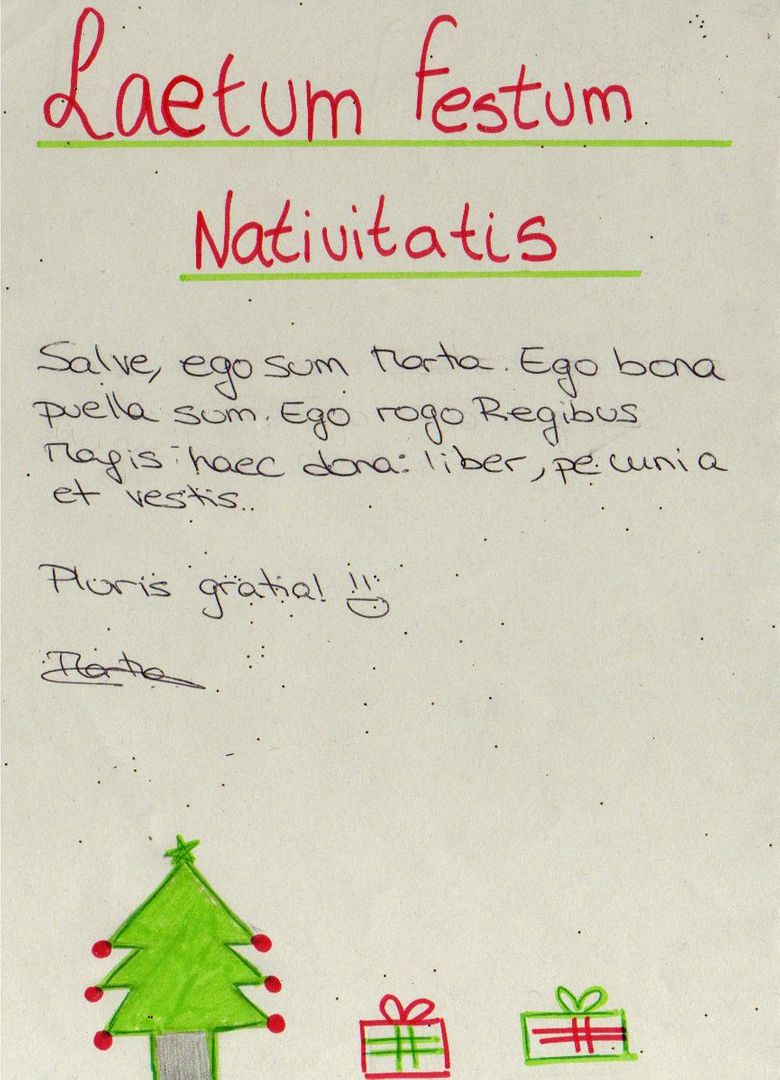 Laetum festum
Nativitatis
Salve, ego sum Marta. Ego bona
puella sum. Ego rogo Regibus
Magis haec dona: liber, pecunia
et vestis..
Pluris gratia!
Marta